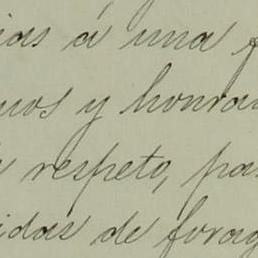 ias á una f
nos y honra
respeto, pa
idas de forag